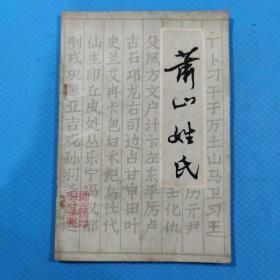 萧山姓氏
丁卜刁干于万土山马卫习王
历亓尹
化仇
殳凤方文户计卞左东平厉卢
古石邛龙右司边占甘申田叶
史兰艾冉卡包白禾纪乌任代
仙生印丘皮处丛乐宁冯权邢
刑戎巩匡亚吉观孙羽